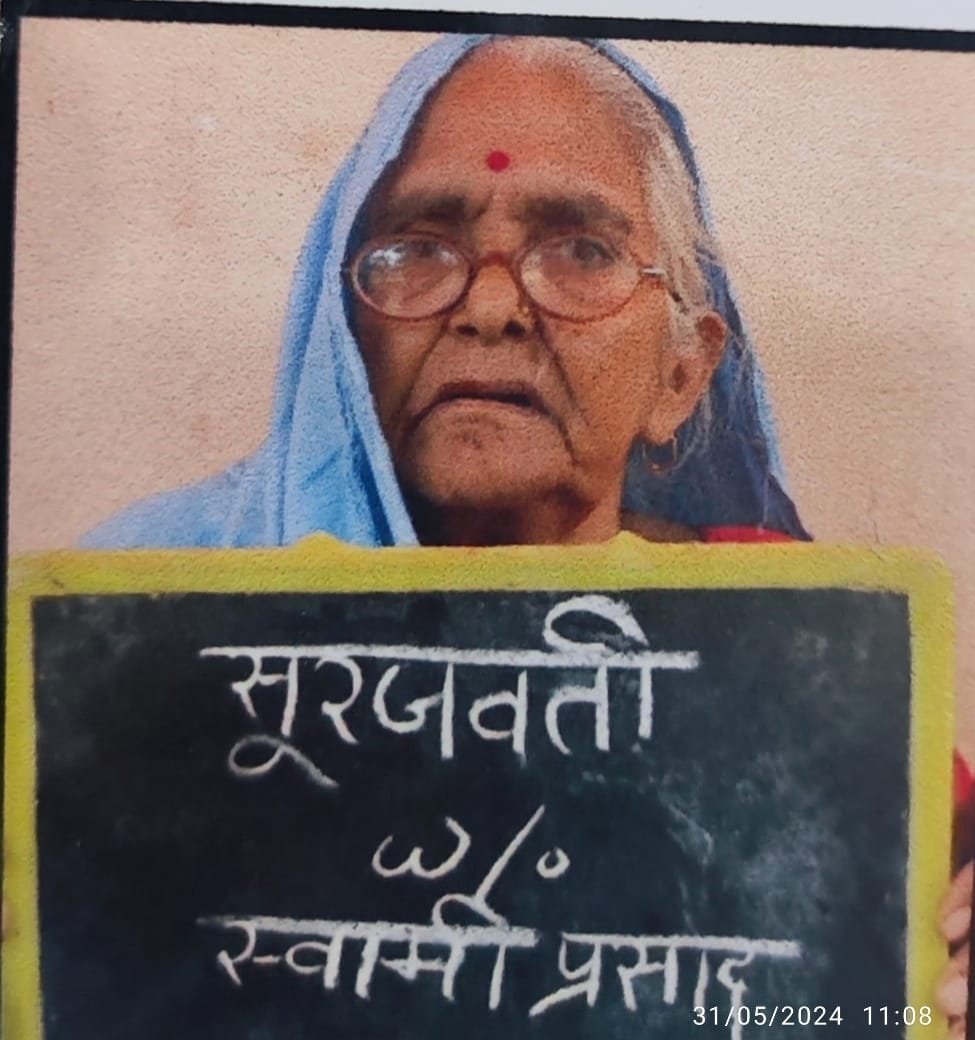 सूरजवती
w/o
स्वामी प्रसाद
31/05/2024 11:08